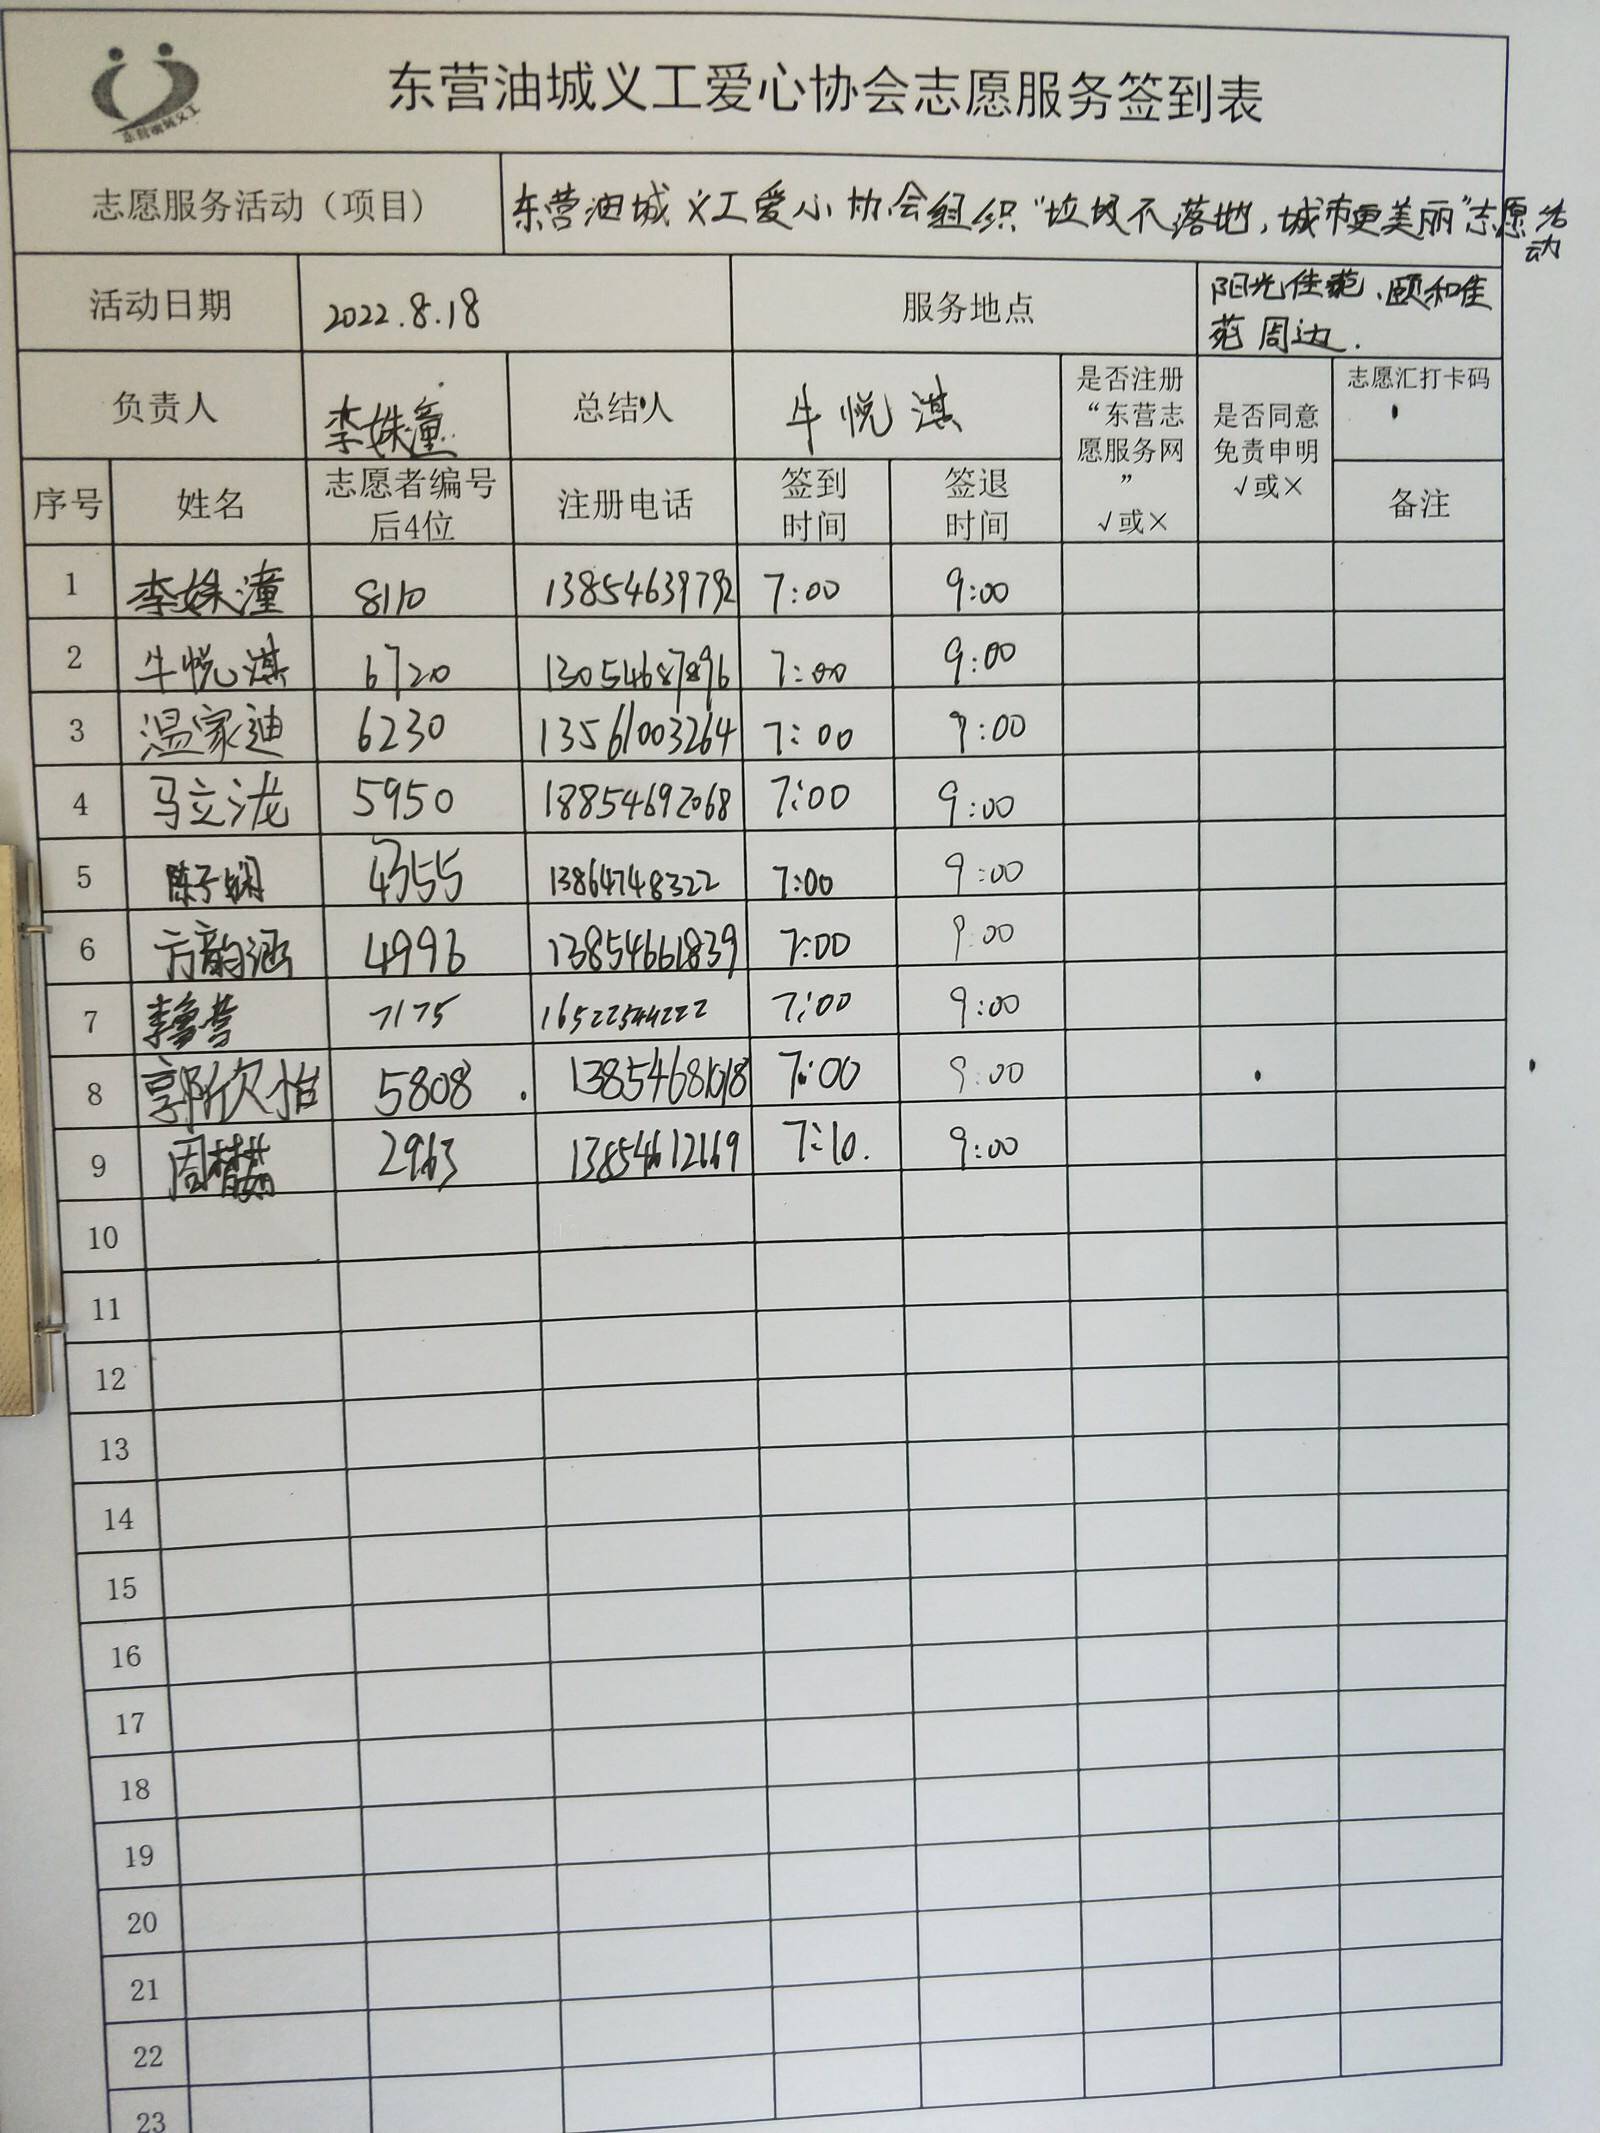 东营油城义工
东营油城义工爱心协会志愿服务签到表
志愿服务活动（项目） 东营油城义工爱心协会组织“垃圾不落地，城市更美丽”志愿活动
活动日期 2022.8.18 服务地点 阳光佳苑、颐和佳
苑周边.
负责人 李姝潼 总结人 牛悦淇
是否注册
“东营志
愿服务网
”
√或×
是否同意
免责申明
√或×
志愿汇打卡码
序号 姓名 志愿者编号
后4位
注册电话 签到
时间
签退
时间
备注
1 李姝潼 8110 13854639792 7:00 9:00
2 牛悦淇 6720 13054687896 7:00 9:00
3 温家迪 6230 13561003264 7:00 9:00
4 马立泷 5950 18854692068 7:00 9:00
5 陈子娴 4355 13864748322 7:00 9:00
6 方韵涵 4996 13854661839 7:00 9:00
7 7175 16522544222 7:00 9:00
8 郭欣怡 5808 13854681018 7:00 9:00
9 周 2963 13854612669 7:10. 9:00
10
11
12
13
14
15
16
17
18
19
20
21
22
23